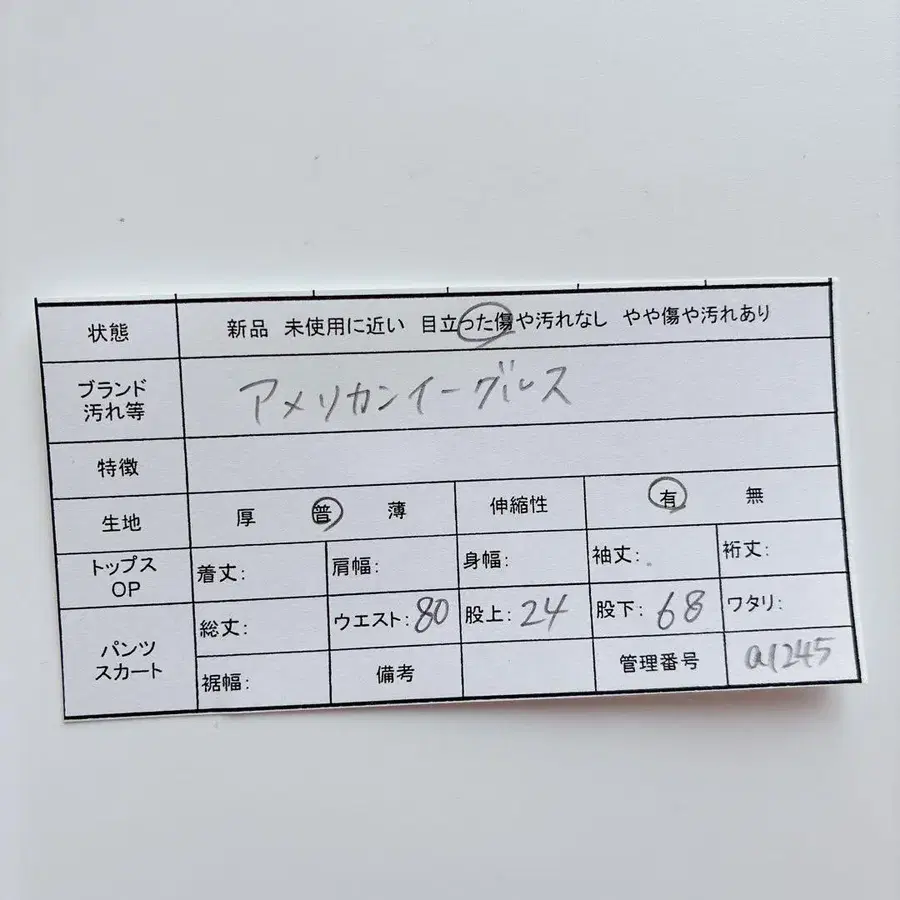 状態 新品 未使用に近い 目立った傷や汚れなし やや傷や汚れあり
ブランド
汚れ等
アメリカンイーグルス
特徴
生地 厚 普 薄 伸縮性 有 無
トップス
OP
着丈: 肩幅: 身幅: 袖丈: 裄丈:
パンツ
スカート
総丈: ウエスト:80 股上:24 股下:68 ワタリ:
裾幅: 備考 管理番号 a1245